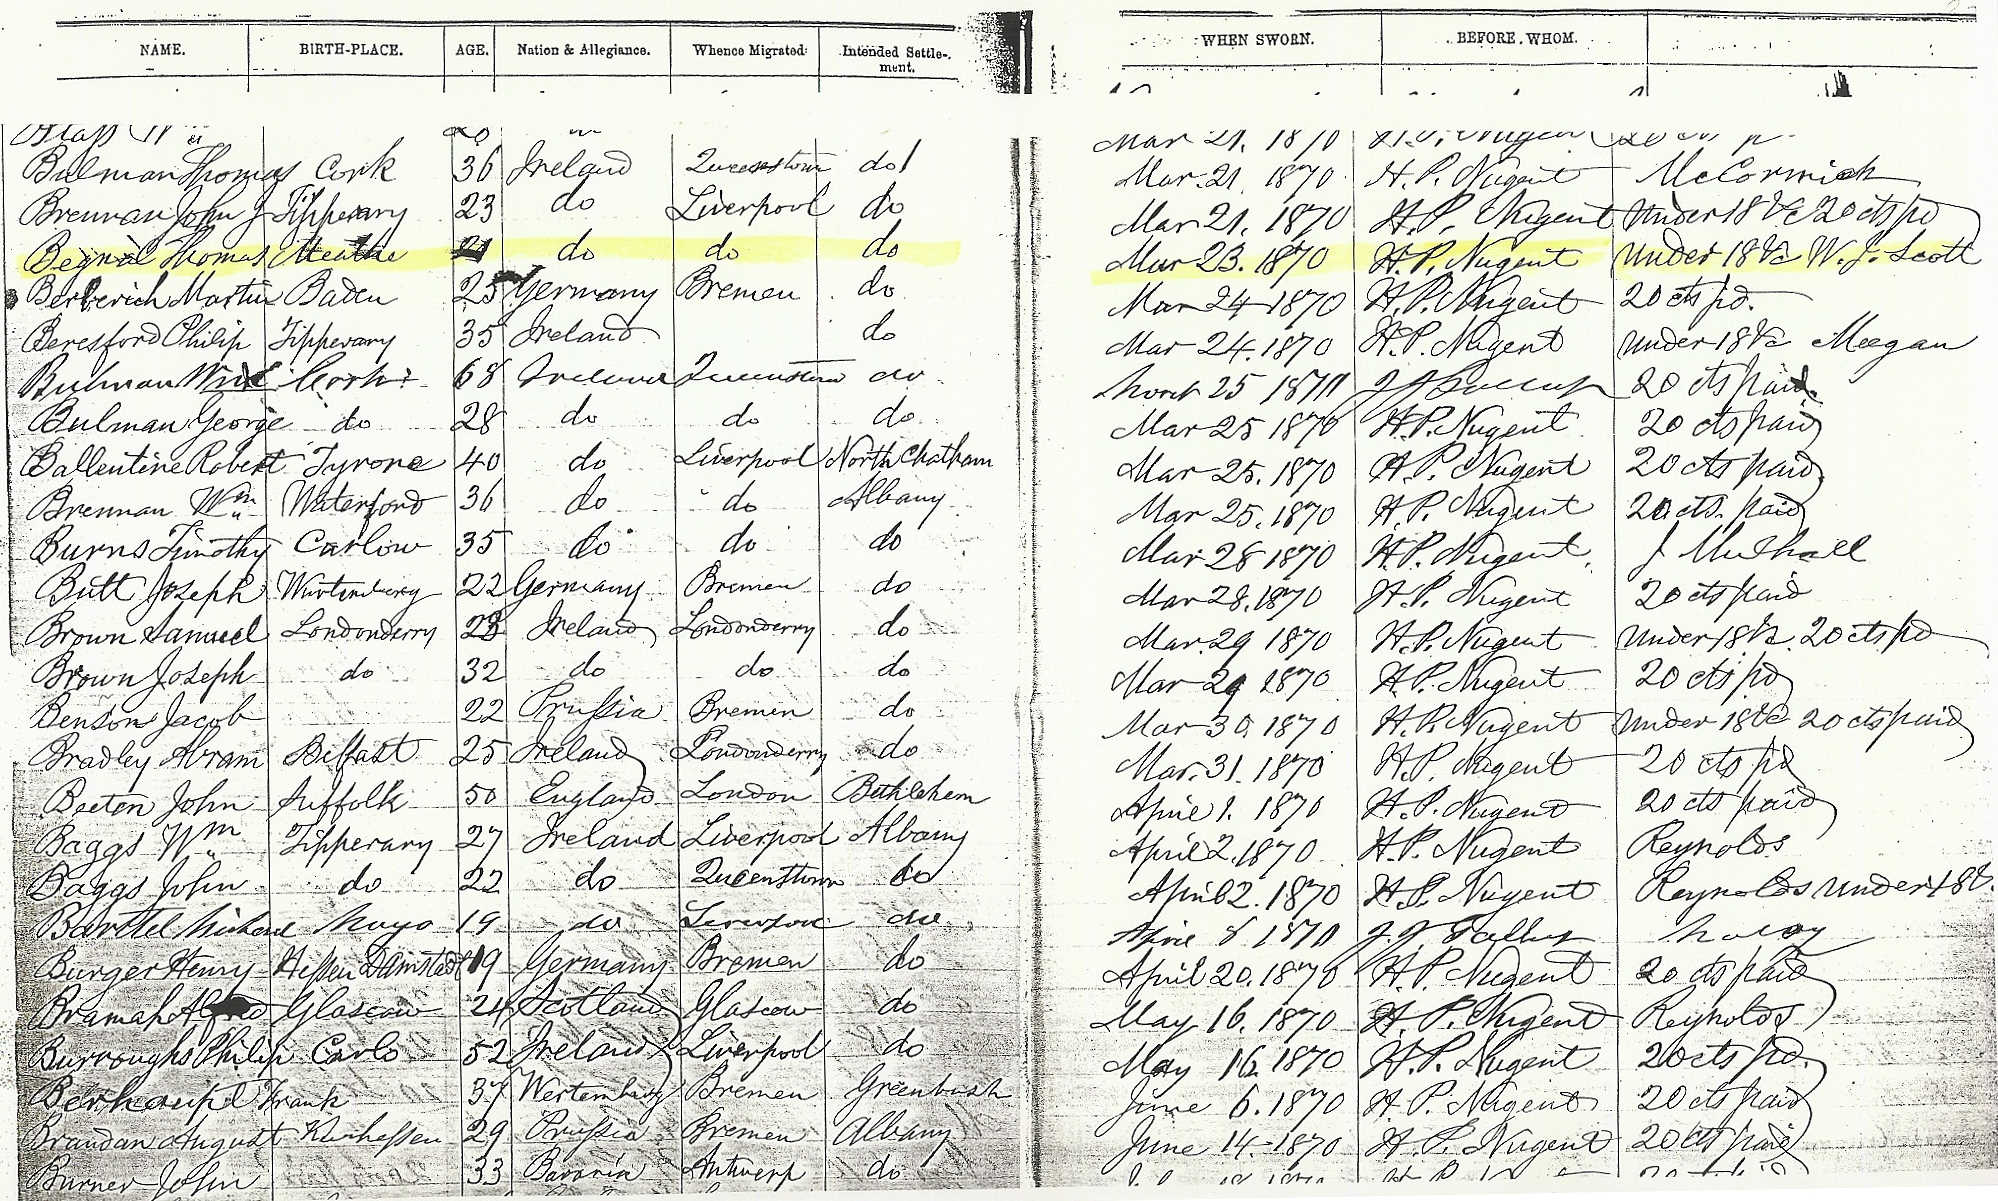 NAME. BIRTH-PLACE. AGE. Nation & Allegiance. Whence Migrated Intended Settlement. WHEN SWORN. BEFORE WHOM.
Mar 21. 1870
Bulman Thomas Cork 36 Ireland Queenstown do Mar. 21. 1870 H. P. Nugent McCormick
Brennan John J Tipperary 23 do Liverpool do Mar 21, 1870 H. P. Nugent Under 18 &c 20 cts pd
Begnal Thomas Meathe 21 do do do Mar 23. 1870 H. P. Nugent Under 18 &c W. J. Scott
Berberich Martin Baden 25 Germany Bremen do Mar 24 1870 H. P. Nugent 20 cts pd.
Beresford Philip Tipperary 35 Ireland do Mar 24. 1870 H. P. Nugent Under 18 &c Meegan
Bulman Cork 68 Ireland Queenstown do March 25 1870 20 cts paid.
Bulman George do 28 do do do Mar 25 1870 H. P. Nugent 20 cts paid
Ballentine Robert Tyrone 40 do Liverpool North Chatham Mar 25. 1870 H. P. Nugent 20 cts paid
Brennan Wm Waterford 36 do do Albany Mar 25. 1870 H. P. Nugent 20 cts. paid
Burns Timothy Carlow 35 do do do Mar 28 1870 H. P. Nugent. J Mulhall
Butt Joseph Wurtemburg 22 Germany Bremen do Mar 28. 1870 H. P. Nugent 20 cts paid
Brown Samuel Londonderry 23 Ireland Londonderry do Mar. 29 1870 H. P. Nugent Under 18 &c. 20 cts pd
Brown Joseph do 32 do do do Mar 29 1870 H. P. Nugent 20 cts pd
Benson Jacob 22 Prussia Bremen do Mar 30. 1870 H. P. Nugent Under 18 &c 20 cts paid
Bradley Abram Belfast 25 Ireland Londonderry do Mar. 31. 1870 H. P. Nugent 20 cts pd
Beeton John Suffolk 50 England London Bethlehem April 1. 1870 H. P. Nugent 20 cts paid
Baggs Wm Tipperary 27 Ireland Liverpool Albany April 2. 1870 H. P. Nugent Reynolds
Baggs John do 22 do Queenstown do April 2. 1870 H. P. Nugent Reynolds Under 18 &.
Michael Mayo 19 do Liverpool do April 8 1870
Burger Henry Hessen Damstedt 19 Germany Bremen do April 20. 1870 H. P. Nugent 20 cts paid
Bramah Alfred Glascow 24 Scotland Glascow do May 16. 1870 H. P. Nugent Reynolds
Burroughs Philip Carlo 52 Ireland Liverpool do May 16. 1870 H. P. Nugent 20 cts pd.
Frank 37 Wertemburg Bremen Greenbush June 6. 1870 H. P. Nugent 20 cts paid
Brandan August Kurhessen 29 Prussia Bremen Albany June 14. 1870 H. P. Nugent 20 cts paid
Burner John 33 Bavaria Antwerp do